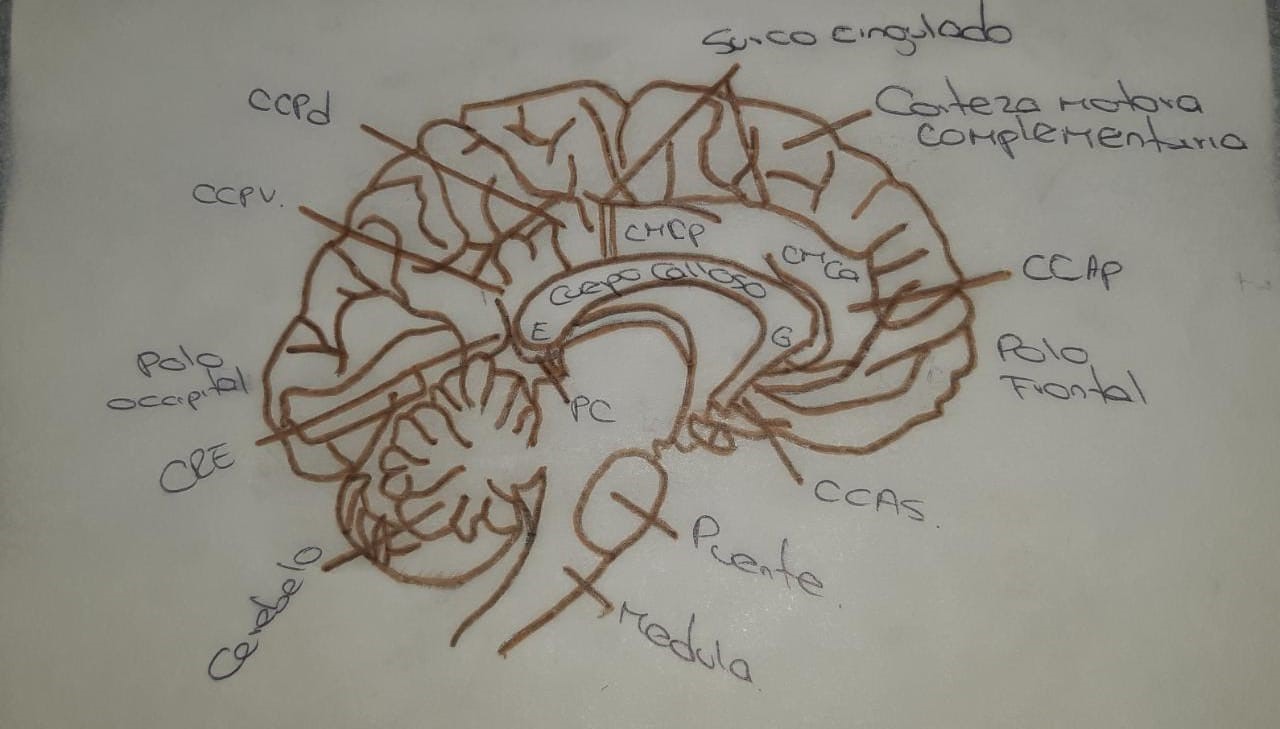 Surco cingulado
CCPd
Corteza motora
complementaria
CCPV.
CMCP
CMCa
CCAp
Cuepo Calloso
E
G
Polo
occipital
Polo
Frontal
PC
CRE
CCAS.
Puente.
Cerebelo
Medula